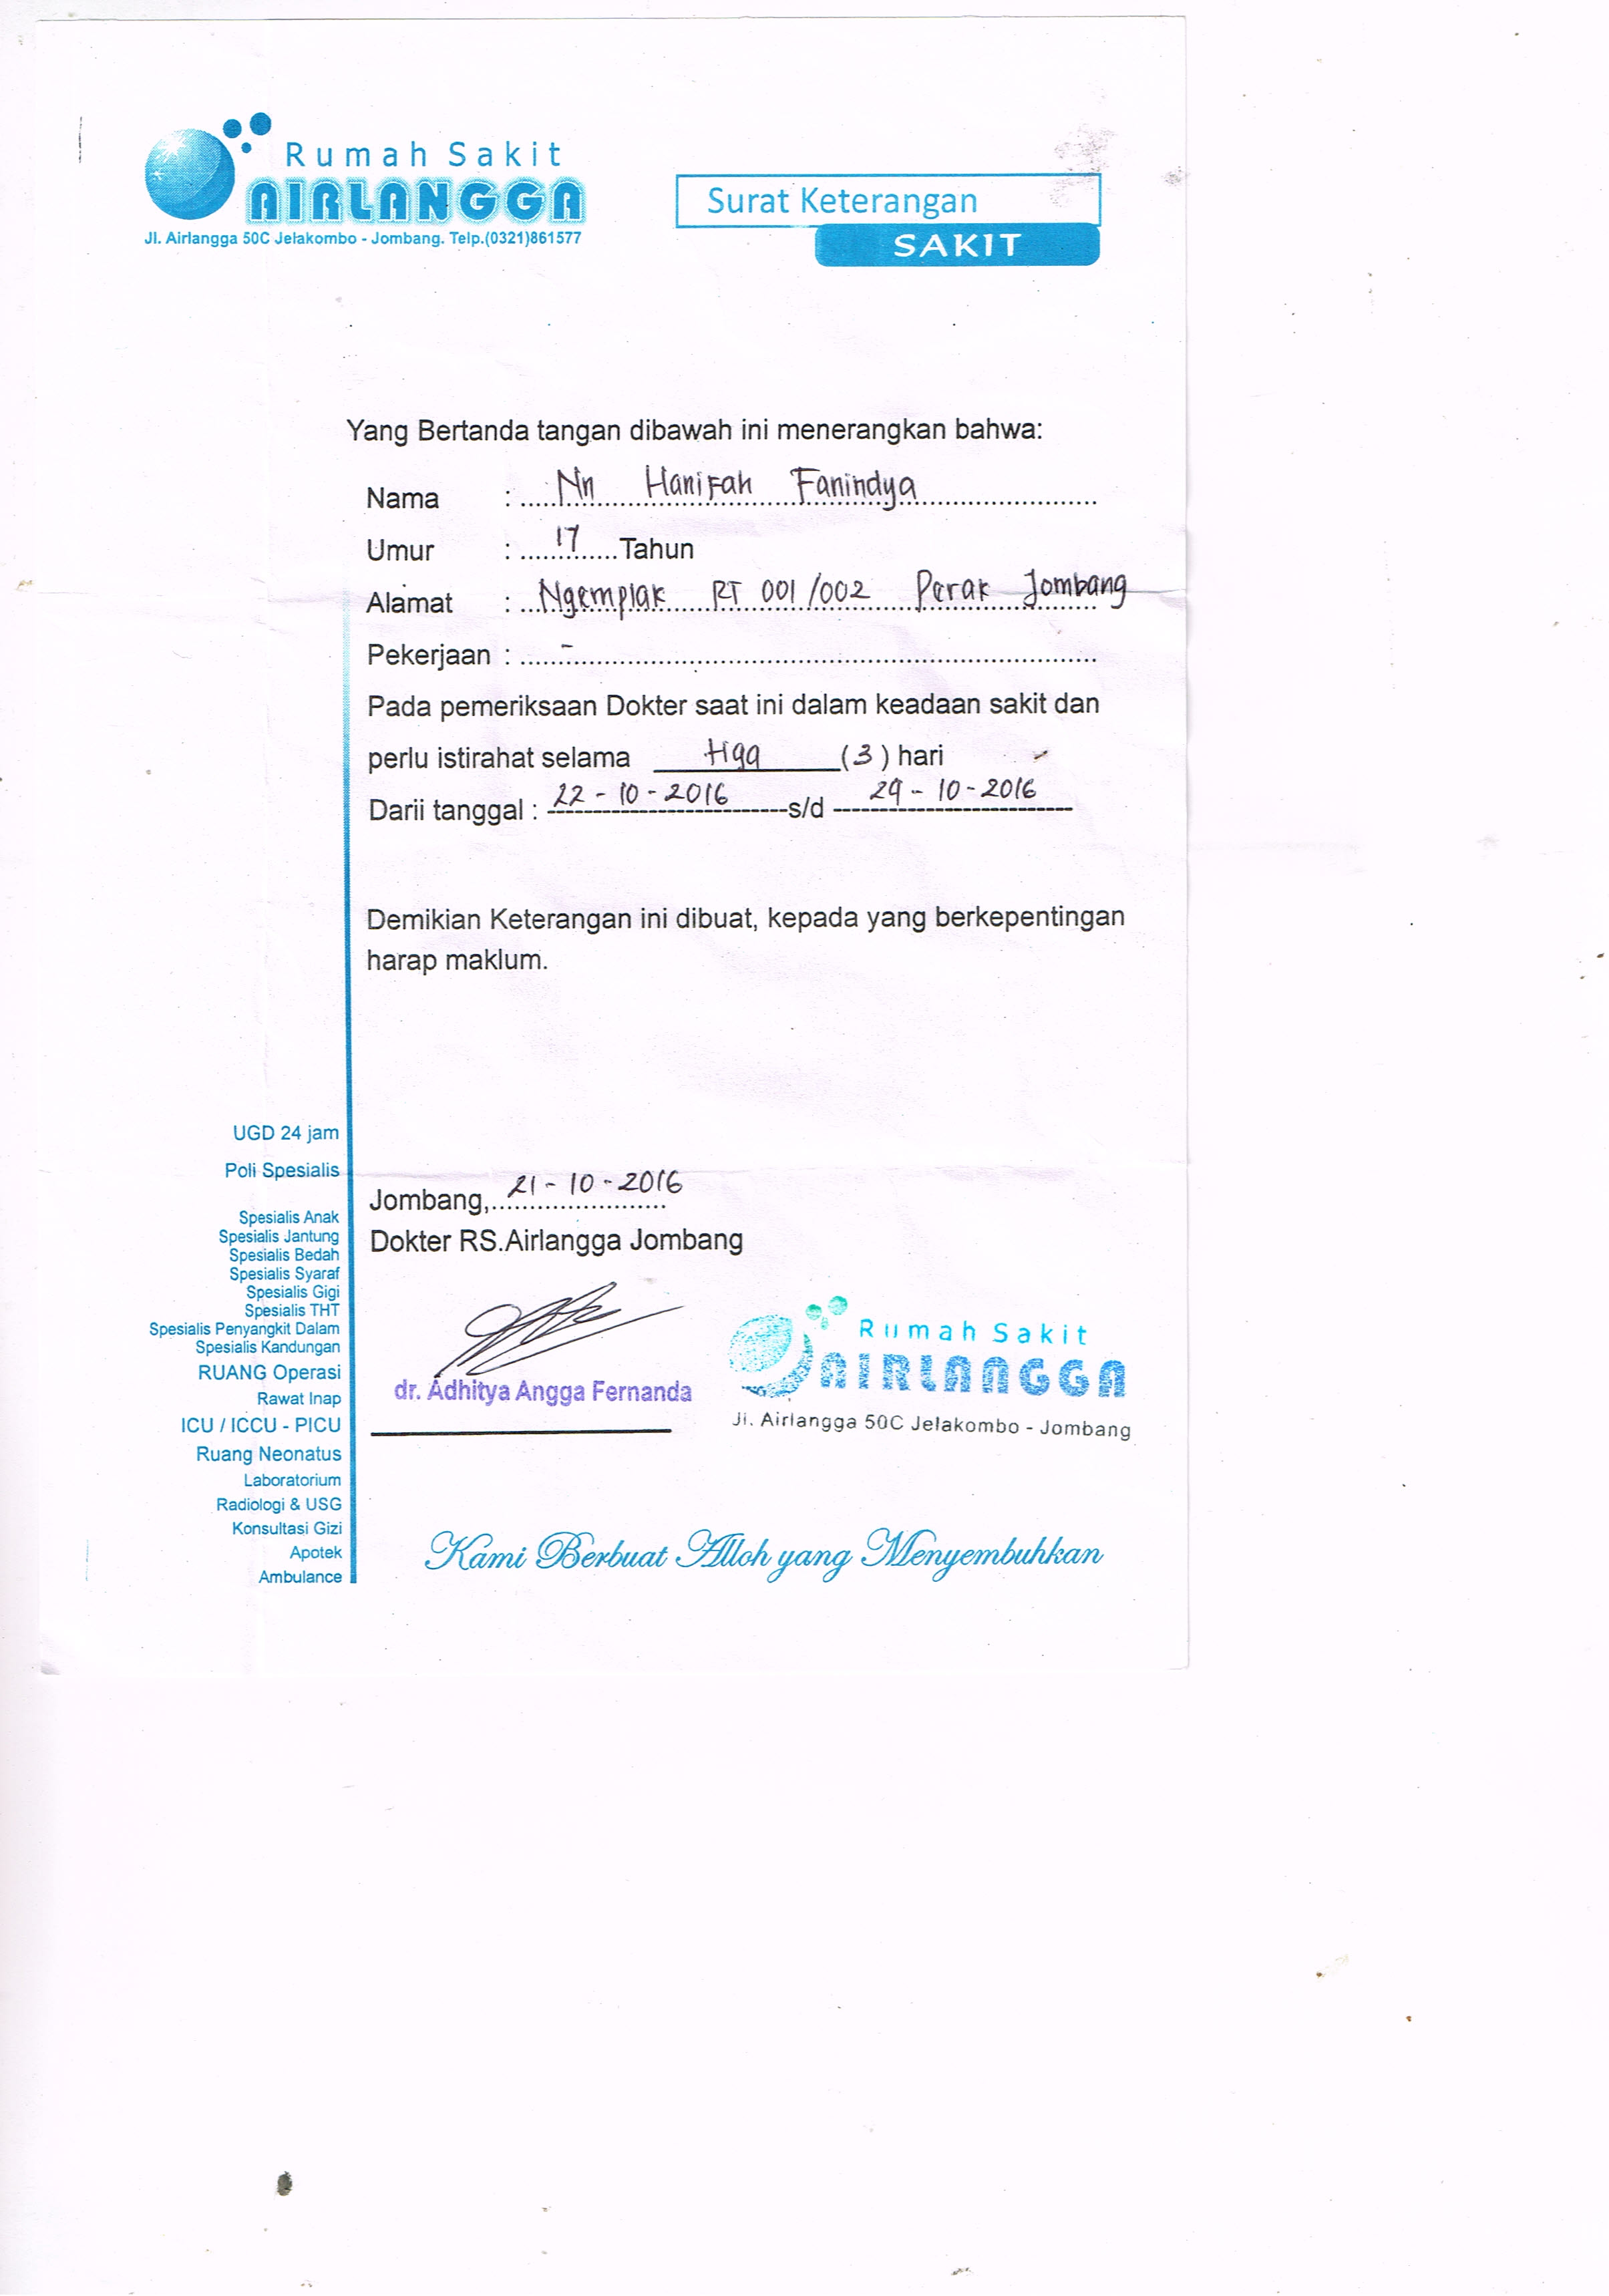 Rumah Sakit
AIRLANGGA
Jl. Airlangga 50C Jelakombo - Jombang. Telp.(0321)861577
Surat Keterangan
SAKIT
Yang Bertanda tangan dibawah ini menerangkan bahwa:
Nama : Nn Hanifah Fanindya
Umur : 17 Tahun
Alamat : Ngemplak RT 001/002 Perak Jombang
Pekerjaan : -
Pada pemeriksaan Dokter saat ini dalam keadaan sakit dan
perlu istirahat selama tiga (3) hari
Darii tanggal : 22-10-2016 s/d 24-10-2016
Demikian Keterangan ini dibuat, kepada yang berkepentingan
harap maklum.
UGD 24 jam
Poli Spesialis
Spesialis Anak
Spesialis Jantung
Spesialis Bedah
Spesialis Syaraf
Spesialis Gigi
Spesialis THT
Spesialis Penyangkit Dalam
Spesialis Kandungan
RUANG Operasi
Rawat Inap
ICU / ICCU - PICU
Ruang Neonatus
Laboratorium
Radiologi & USG
Konsultasi Gizi
Apotek
Ambulance
Jombang, 21-10-2016
Dokter RS.Airlangga Jombang
dr. Adhitya Angga Fernanda
Rumah Sakit
AIRLANGGA
Jl. Airlangga 50C Jelakombo - Jombang
Kami Berbuat Alloh yang Menyembuhkan